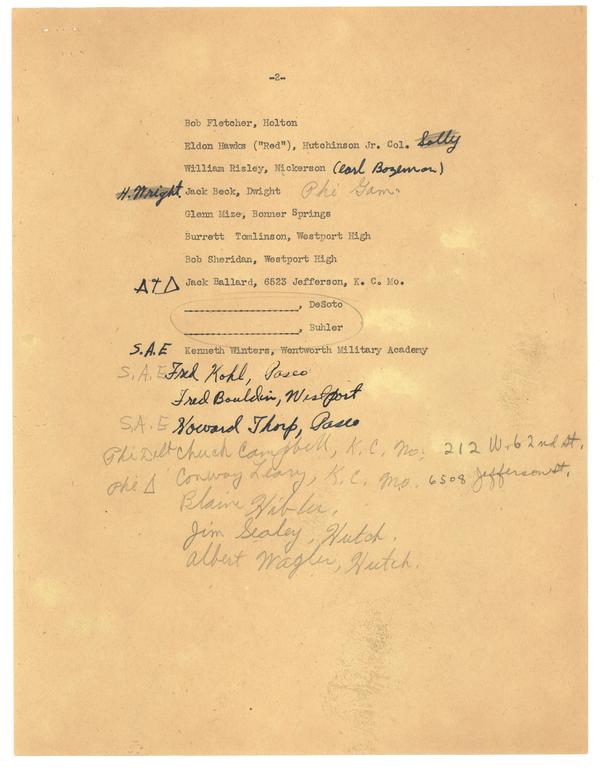 -2-
Bob Fletcher, Holton
Eldon Hawks ("Red"), Hutchinson Jr. Col. Solly
William Risley, Nickerson (Earl Bozeman)
H. Wright. Jack Beck, Dwight Phi Gam.
Glenn Mize, Bonner Springs
Burrett Tomlinson, Westport High
Bob Sheridan, Westport High
ΔTΔ Jack Ballard, 6523 Jefferson, K. C. Mo.
____________________, DeSoto
____________________, Buhler
S.A.E Kenneth Winters, Wentworth Military Academy
S.A.E Fred Kohl, Paseo
Fred Bouldin, Westport
S.A.E Howard Thorp, Paseo
Phi Delt Chuck Campbell, K.C. Mo. 212 W. 62nd St.
Phi Δ Conway Leary, K.C. Mo. 6508 Jefferson St.
Blaine Hibler.
Jim Sealey, Hutch.
Albert Wagler, Hutch.